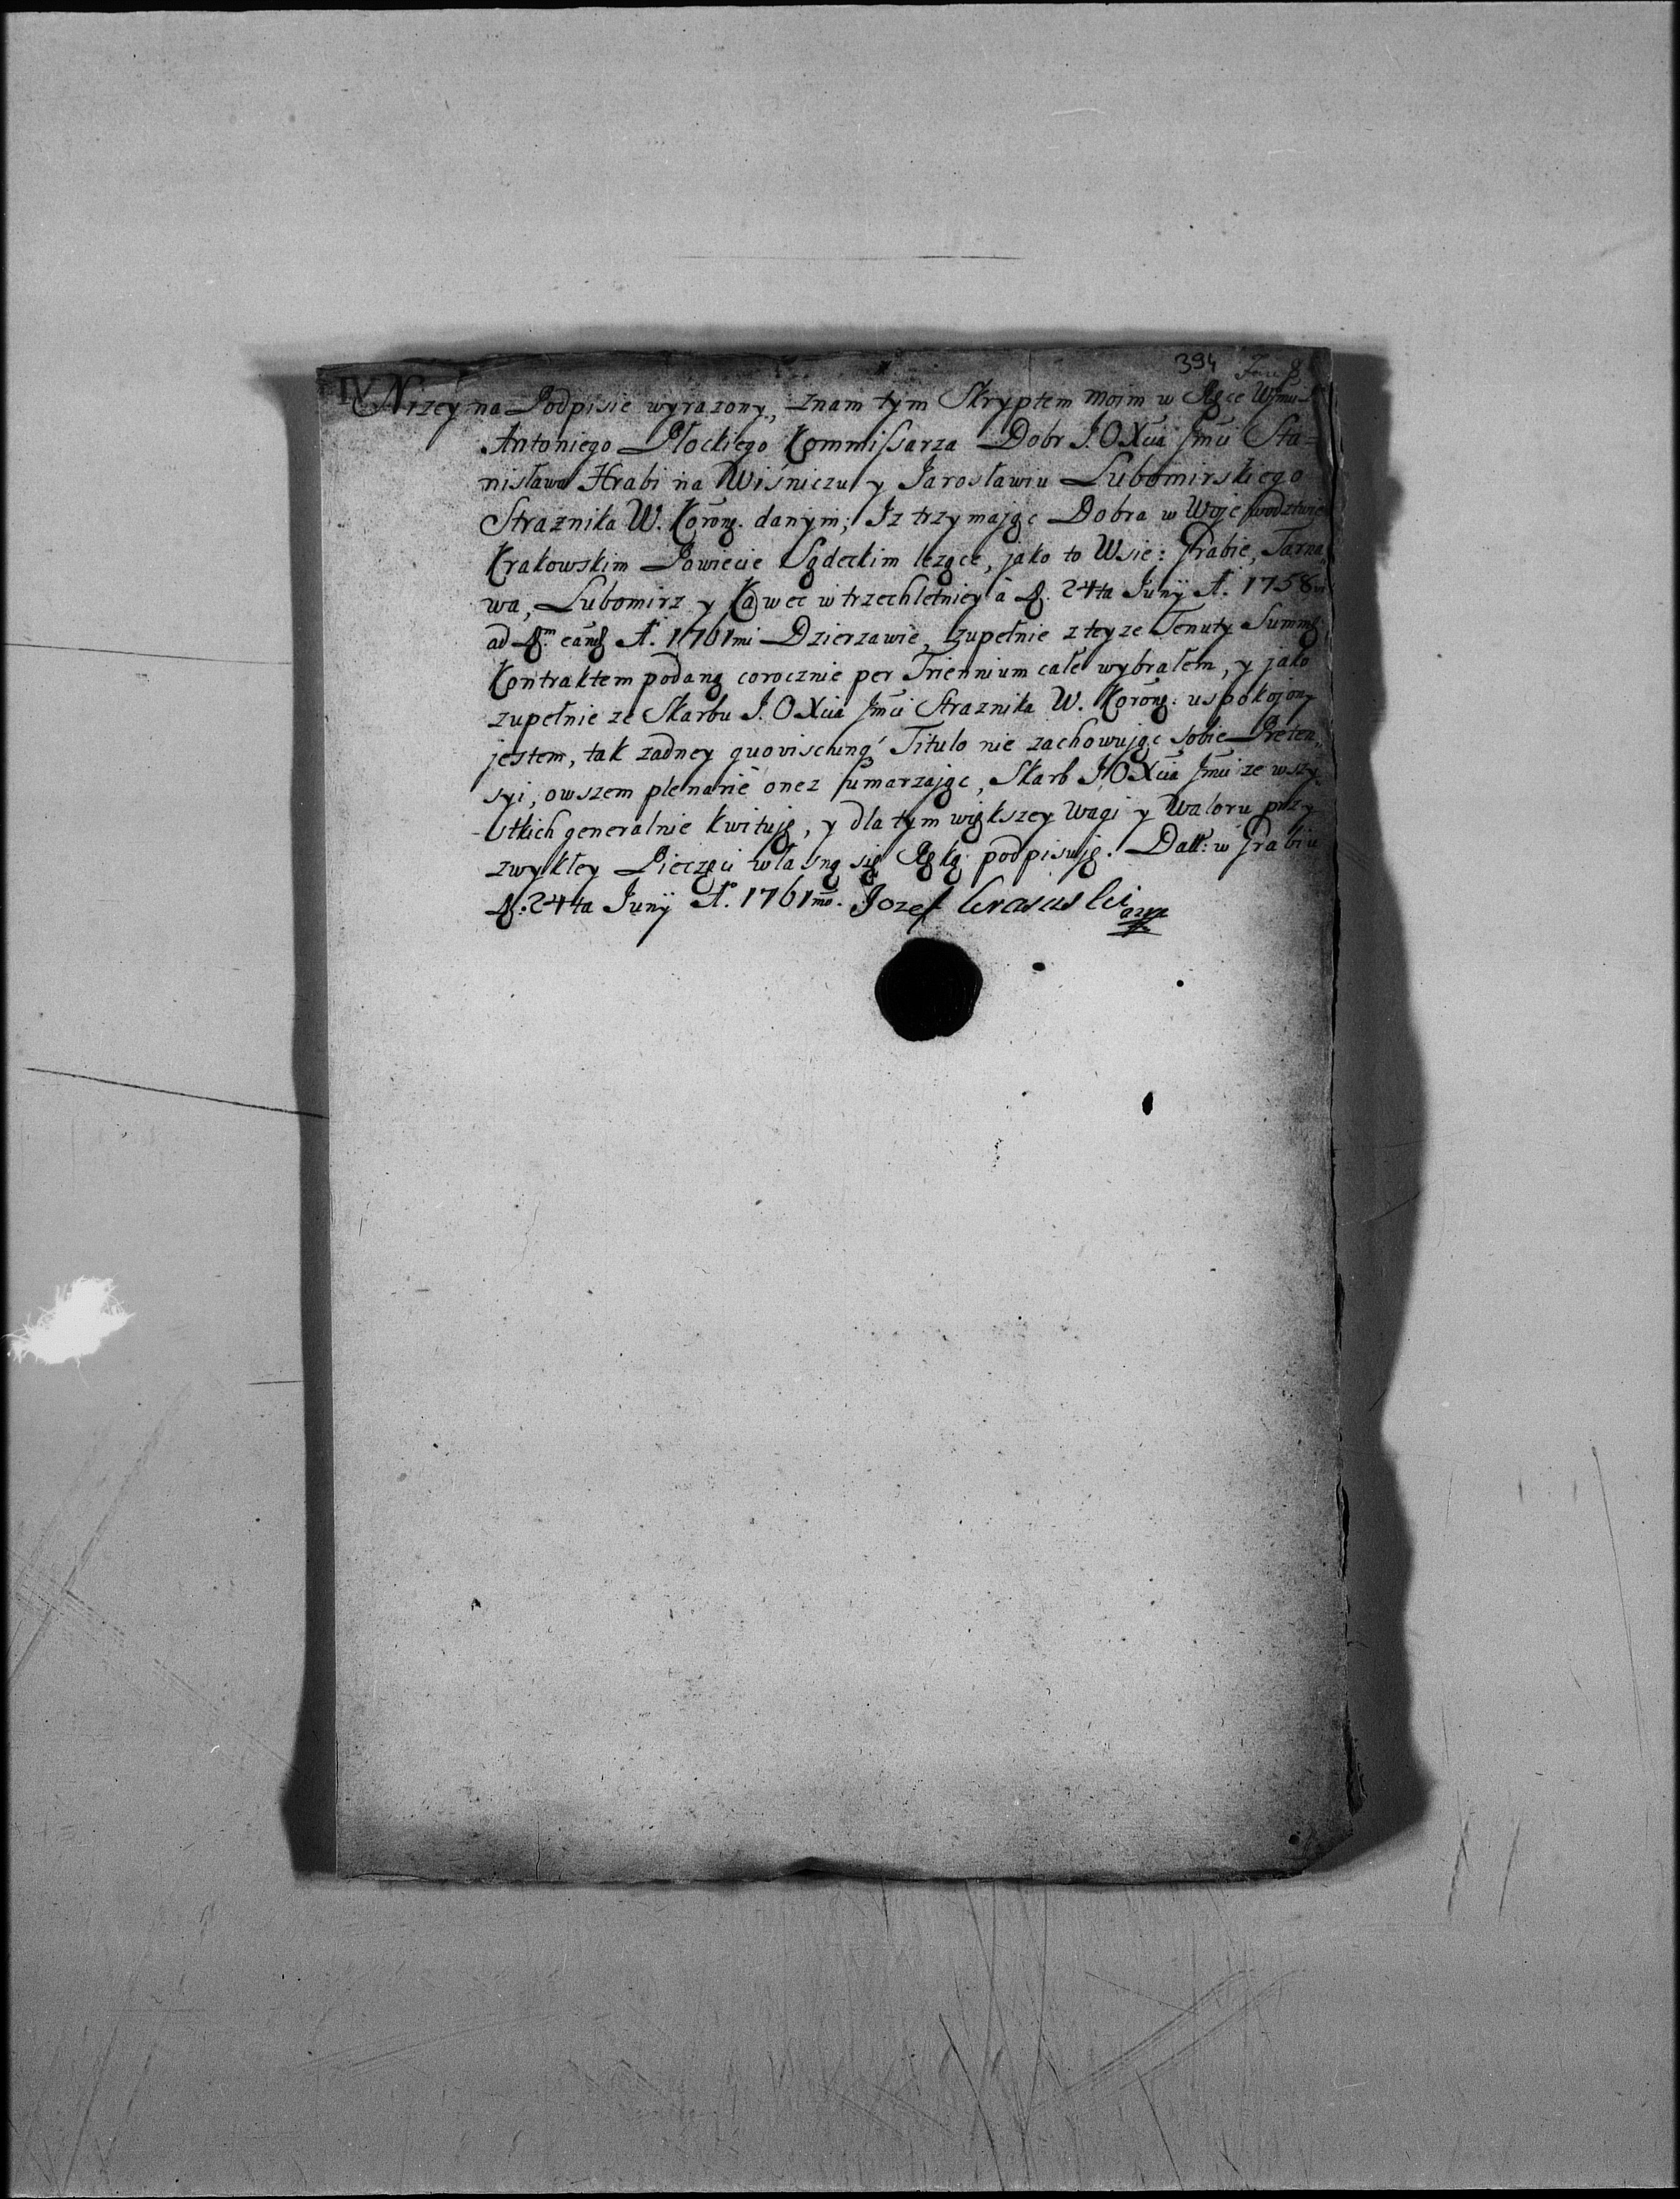 394
IV Nizey na Podpisie wyrazony, znam tym Skryptem moim w Ręce
Antoniego Płockiego Kommissarza Dobr J.OXcia Jmći Sta=
nisława Hrabi na Wiśniczu y Jarosławiu Lubomirskiego
Straznika W. Koronng. danym; Iz trzymając Dobra w Wojewodztwie
Krakowskim Powiecie Sądeckim lezące, jako to Wsie: Grabie, Tarna
wa, Lubomirz y Kawec w trzechletniey à D. 24ta Junÿ A. 1758
ad D.m eand A. 1761mi Dzierzawie, zupełnie z teyze Tenuty Summę
Kontraktem podaną corocznie per Triennium całe wybrałem, y jako
zupełnie ze Skarbu J. OXcia Jmći Straznika W. Koronng: uspokojony
jestem, tak zadney quoviscunq Titulo nie zachowując sobie Preten
syi, owszem plenarie onez umarzając, Skarb J.OXcia Jmći ze wszy
stkich generalnie kwituję, y dla tym większey Wagi y Waloru przy
zwykłey Pieczęci własną się Ręką podpisuję. Datt: w Grabiu
D. 24ta Junÿ A. 1761mo. Jozef Krasuski